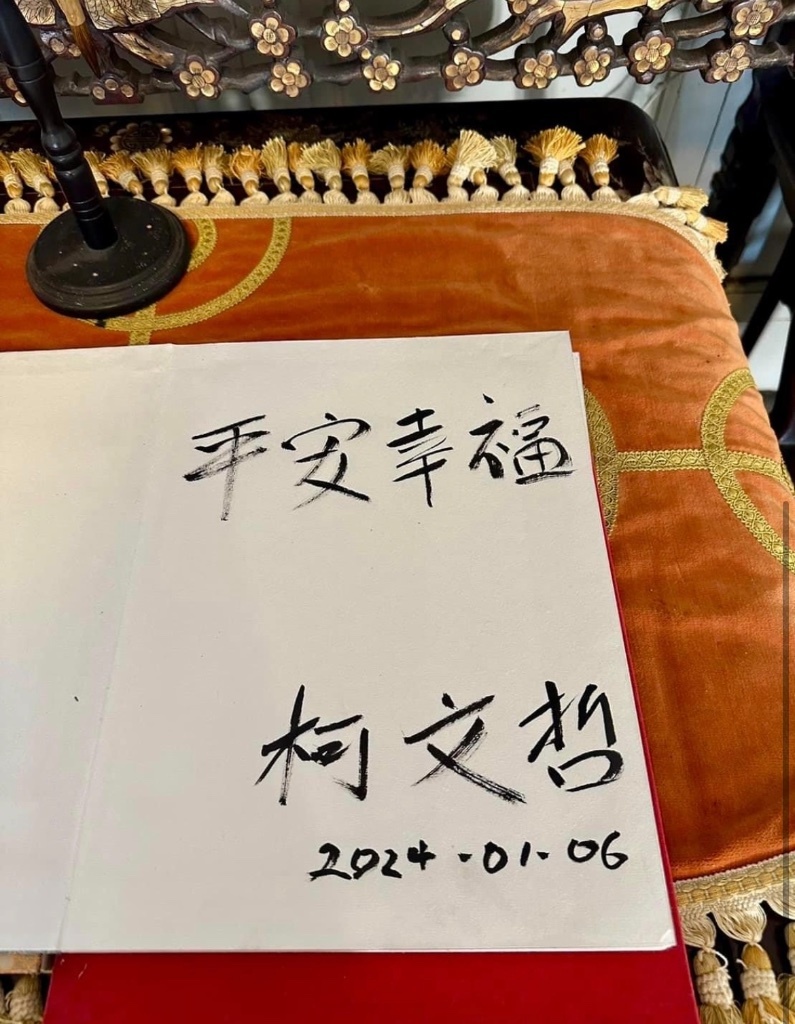 平安幸福
柯文哲
2024.01.06